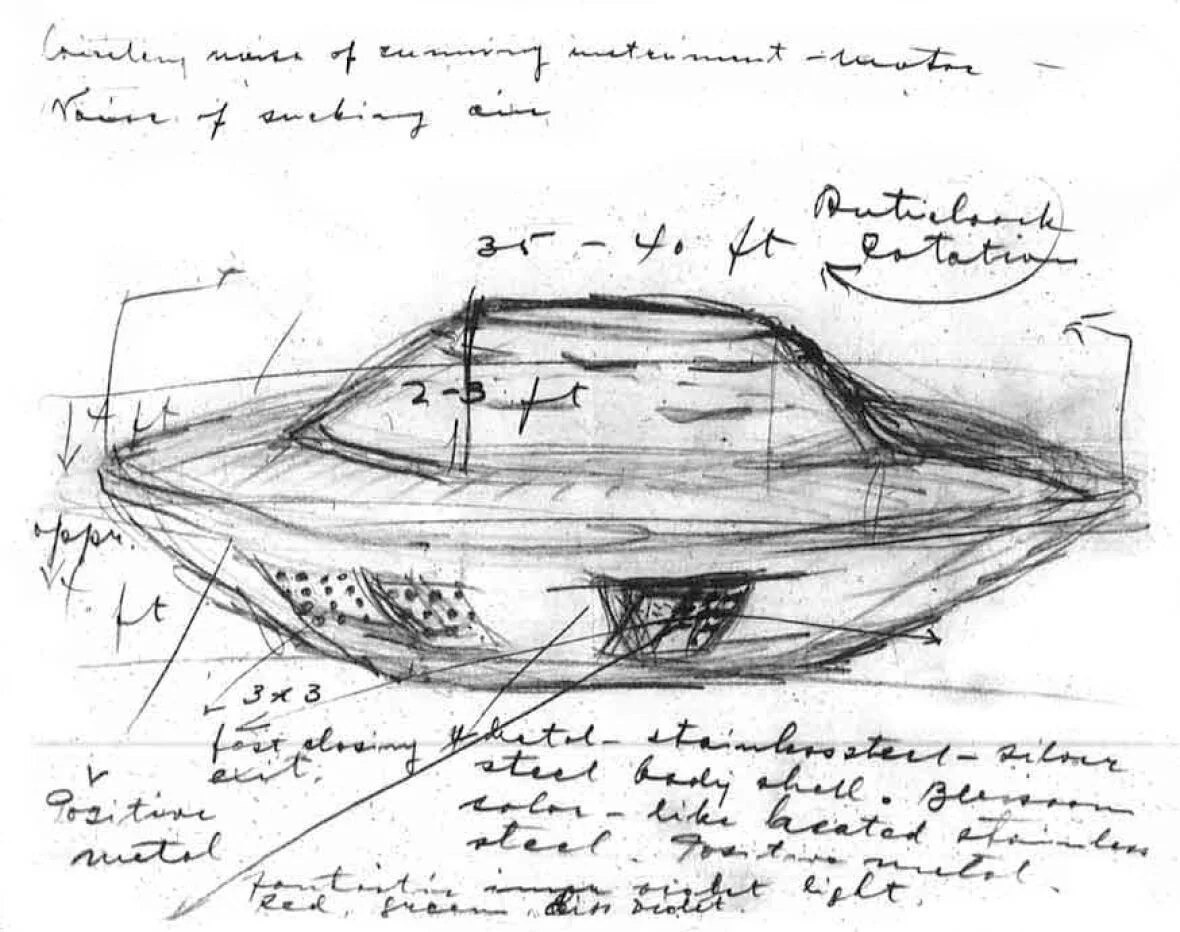 noise of running instrument - motor -
Noise of sucking air
Anticlock
35 - 40 ft
Rotation
2-3 ft
4 ft
appr.
4 ft
3 x 3
fast closing
exit.
Positive
metal
Metal - stainless steel - silver
steel body shell.
color - like heated stainless
steel. Positive metal.
fantastic violet light.
red, green, violet.